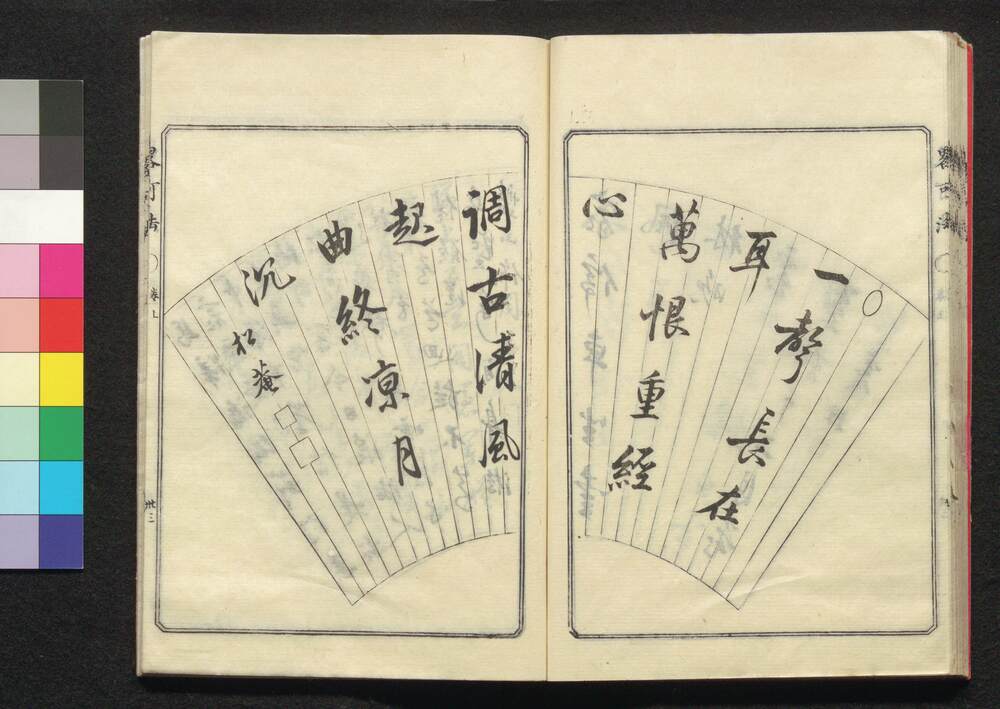 一聲長在
耳
萬恨重經
心
調古清風
起
曲終凉月
沉
松菴
卅三